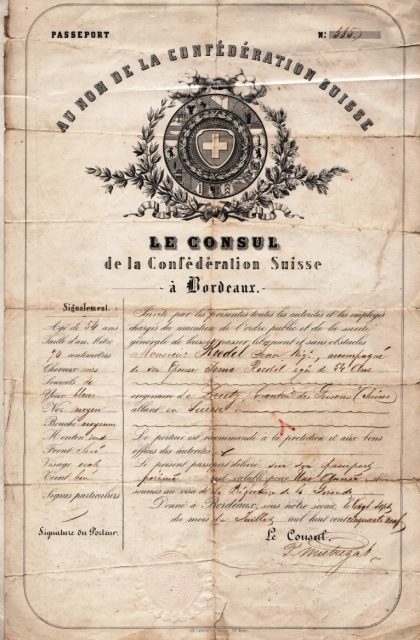 PASSEPORT
N: 385
AU NOM DE LA CONFÉDÉRATION SUISSE
LE CONSUL
de la Confédération Suisse
à Bordeaux.
Signalement.
Agé de 54 ans
Taille d'un Mètre
70 centimètres
Cheveux
Sourcils
Yeux bleus
Nez moyen
Bouche moyenne
Menton rond
Front élevé
Visage ovale
Teint
Signes particuliers
Signature du Porteur.
Invite par les présentes toutes les autorités et les employés
chargés du maintien de l'ordre public et de la sûreté
générale de laisser passer librement et sans obstacles
Monsieur Jean accompagné
de son 54 ans
originaire de canton des Grisons (Suisse)
allant en Suisse
Le porteur est recommandé à la protection et aux bons
offices des autorités
Le présent passeport délivré sur son passeport
périmé est valable pour Une Année et
soumis au visa de La Préfecture de la Gironde
Donné à Bordeaux, sous notre sceau, le Vingt Sept
du mois de Juillet mil huit cent cinquante neuf
Le Consul,
P. Mestrezat